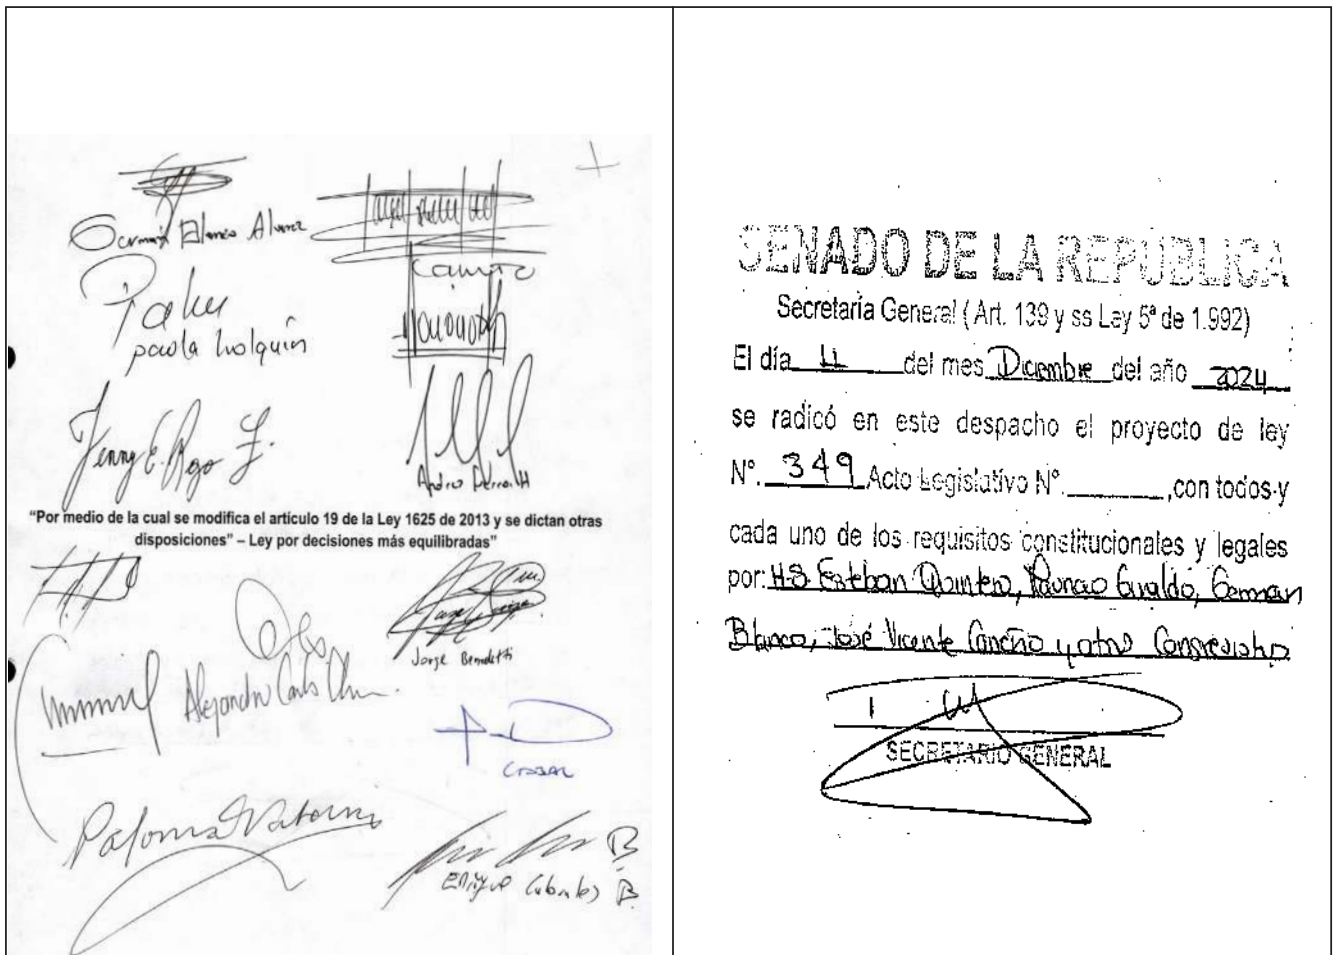 Germán Blanco Alvarez
paola holguín
Jenny E. Rozo Z.
"Por medio de la cual se modifica el artículo 19 de la Ley 1625 de 2013 y se dictan otras
disposiciones" – Ley por decisiones más equilibradas"
Jorge Benedetti
Alejandro Carlos Ch
Paloma Valencia
Enrique Cabrales B.
SENADO DE LA REPÚBLICA
Secretaría General (Art. 139 y ss Ley 5ª de 1.992)
El día 4 del mes Diciembre del año 2024
se radicó en este despacho el proyecto de ley
N°. 349 Acto Legislativo N°. ________, con todos y
cada uno de los requisitos constitucionales y legales
por: H.S Esteban Quintero, Giraldo, German
Blanco, José Vicente Carreño y otros Congresistas
SECRETARIO GENERAL